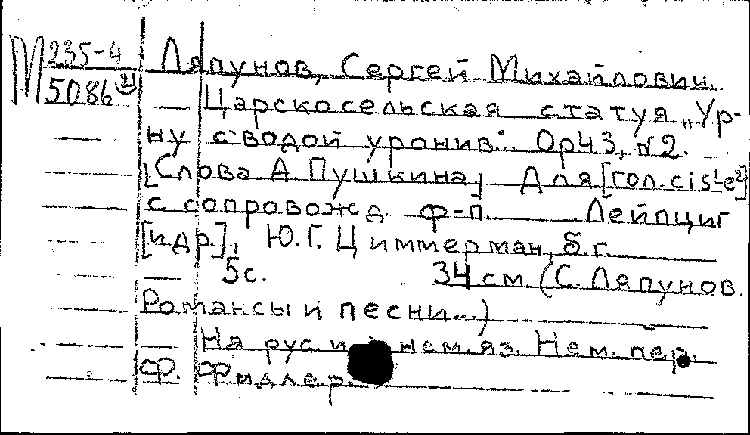 М 235-4 Ляпунов, Сергей Михайлович.
5086 2)
Царскосельская статуя „Ур-
ну с водой уронив". Op43, N2.
[Слова А Пушкина, Для [гол. cis¹-e²]
с сопровожд. ф-п. Лейпциг
[и др.], Ю.Г. Циммерман, б.г.
5с. 34 см. (С. Ляпунов.
Романсы и песни...)
На рус и нем. яз. Нем. пер.
Ф. Фидлер.